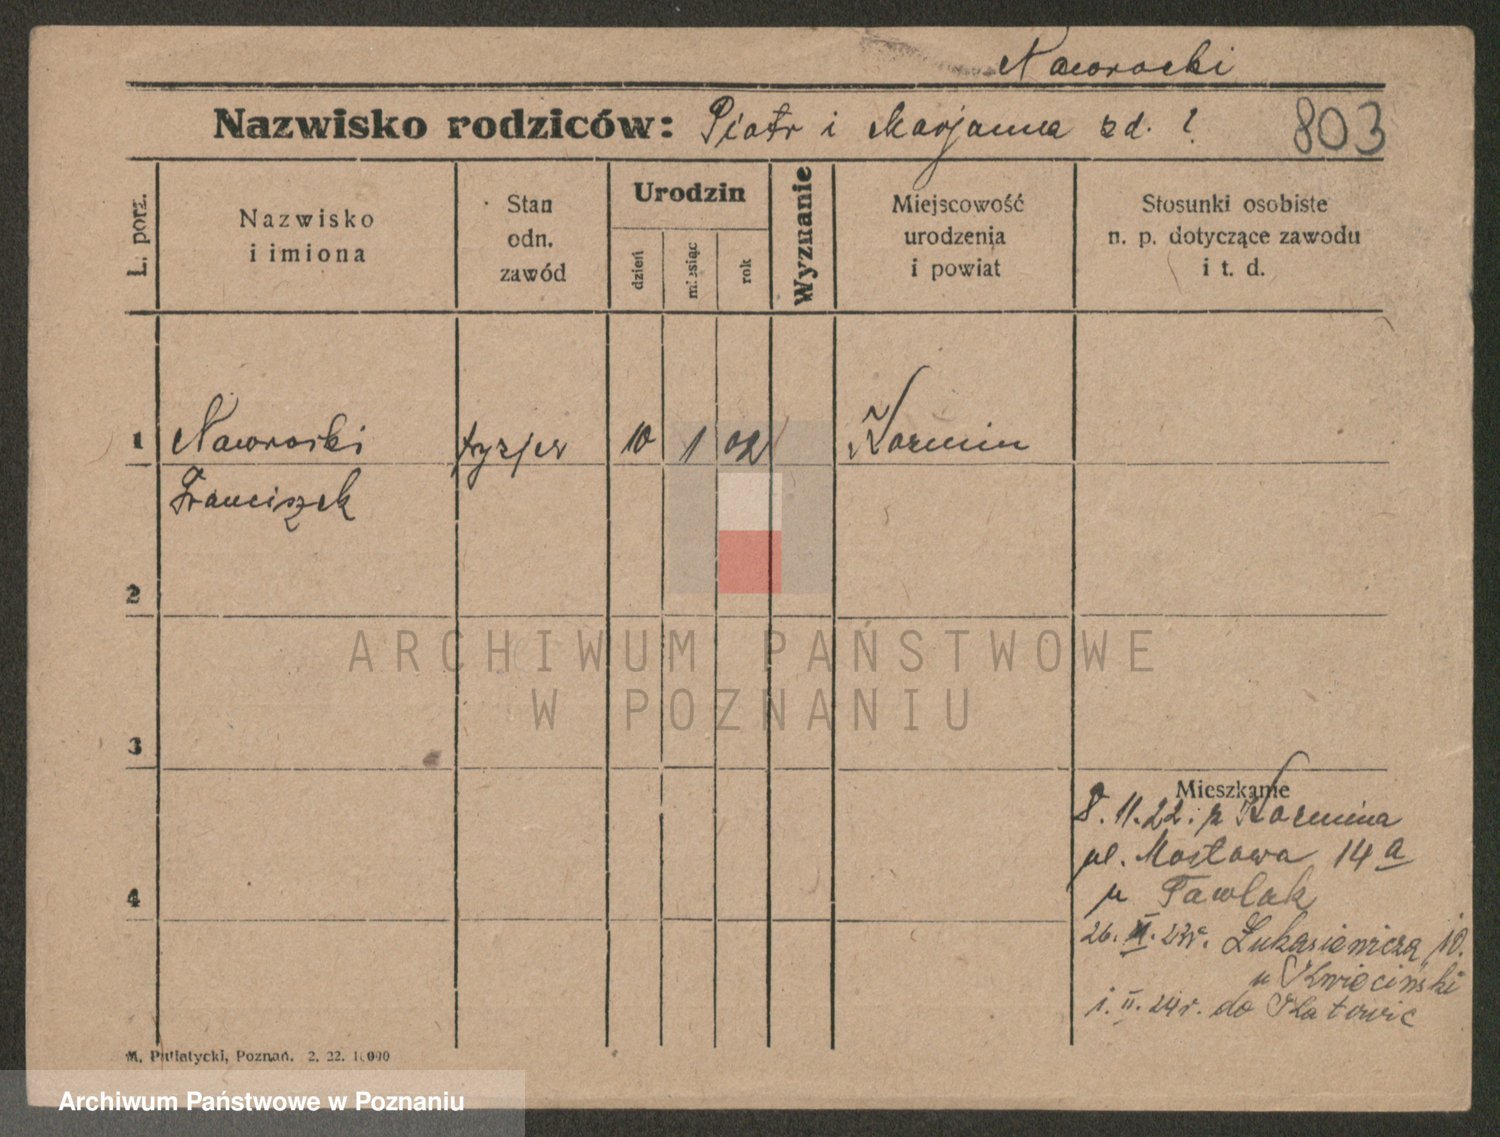 Naworocki
Nazwisko rodziców: Piotr i Marjanna zd. ? 803
L. porz.
Nazwisko
i imiona
Stan
odn.
zawód
Urodzin
dzień
miesiąc
rok
Wyznanie
Miejscowość
urodzenia
i powiat
Stosunki osobiste
n. p. dotyczące zawodu
i t. d.
1 Naworocki fryzjer 10 1 02 Kormin
Franciszek
2
ARCHIWUM PAŃSTWOWE
W POZNANIU
3
Mieszkanie
8.11.22. z Kormina
ul. Mostowa 14a
4
u Pawlak
26. II. 23r. Łukasiewicza 10.
u Kwieciński
1. II. 24r. do Katowic
M. Putiatycki, Poznań. 2. 22. 10000
Archiwum Państwowe w Poznaniu